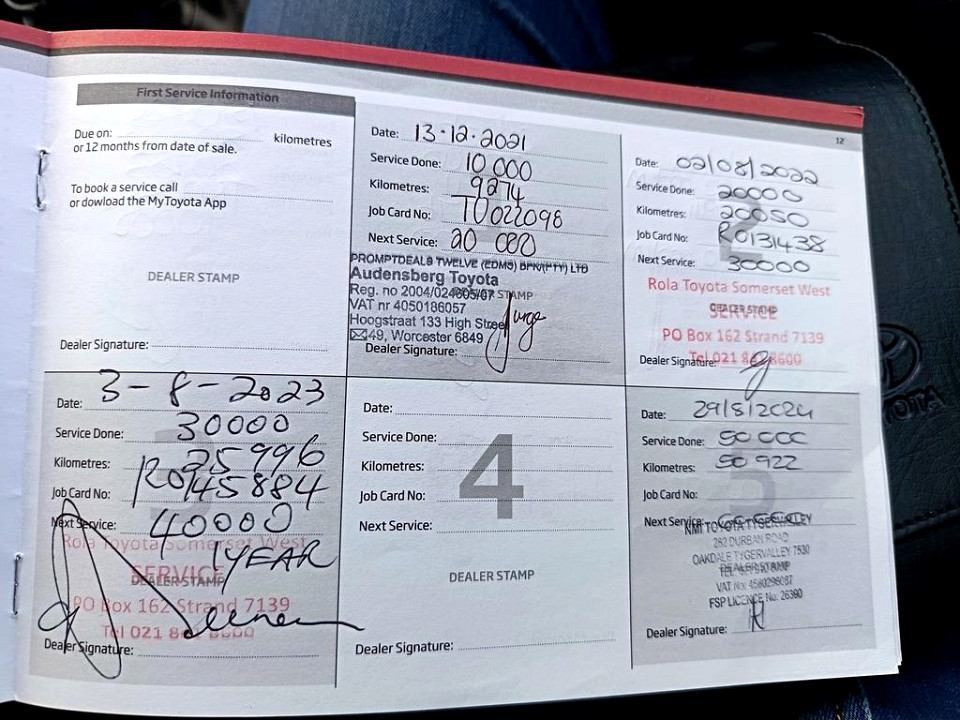 12
First Service Information
Due on: kilometres
or 12 months from date of sale.
To book a service call
or dowload the MyToyota App
DEALER STAMP
Dealer Signature:
Date: 13-12-2021
Service Done: 10 000
Kilometres: 9274
Job Card No: TU022098
Next Service: 20 000
PROMPTDEALS TWELVE (EDMS) BPK(PTY) LTD
Audensberg Toyota
Reg. no 2004/024605/07
STAMP
VAT nr 4050186057
Hoogstraat 133 High Street
49, Worcester 6849
Dealer Signature:
Date: 02/08/2022
Service Done: 20000
Kilometres: 20050
Job Card No: R0131438
Next Service: 30000
Rola Toyota Somerset West
DEALER STAMP
SERVICE
PO Box 162 Strand 7139
Dealer Signature:
Tel 021 8 8600
3
Date: 3-8-2023
Service Done: 30000
Kilometres: 35996
Job Card No: R0145884
Next Service: 40000
1 YEAR
Rola Toyota Somerset West
SERVICE
DEALER STAMP
PO Box 162 Strand 7139
Tel 021 8 8600
Dealer Signature:
4
Date:
Service Done:
Kilometres:
Job Card No:
Next Service:
DEALER STAMP
Dealer Signature:
5
Date: 29/8/2024
Service Done: 50 000
Kilometres: 50 922
Job Card No:
Next Service:
NMI TOYOTA TYGERVALLEY
282 DURBAN ROAD
OAKDALE TYGERVALLEY 7530
DEALER STAMP
VAT No: 4580298087
FSP LICENCE No: 26390
Dealer Signature: